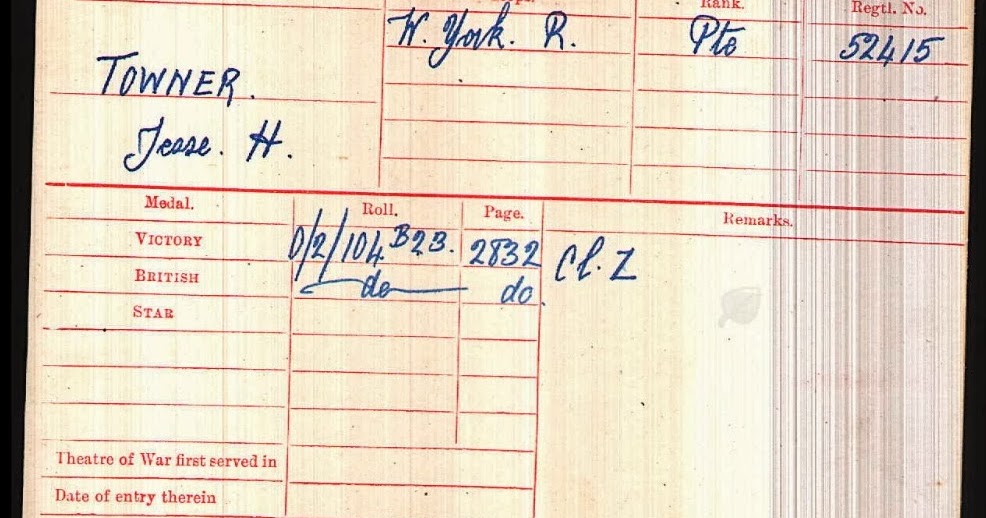 Rank. Regtl. No.
W. York. R. Pte 52415
TOWNER.
Jesse. H.
Medal. Roll. Page. Remarks.
VICTORY 0/2/104 B23. 2832 Cl. Z
BRITISH do do.
STAR
Theatre of War first served in
Date of entry therein